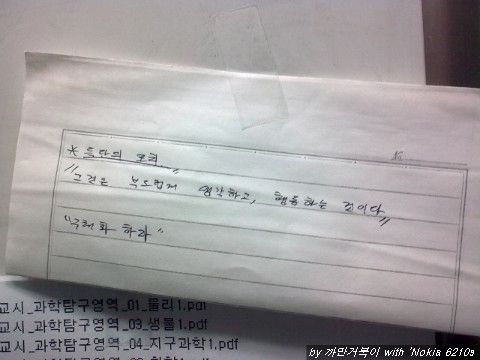 No.
*
"그것은 부드럽게 생각하고, 행동하는 것이다"
"구체화 하라"
교시_과학탐구영역_01_물리1.pdf
교시_과학탐구영역_03_생물1.pdf
교시_과학탐구영역_04_지구과학1.pdf
by 까만거북이 with 'Nokia 6210s